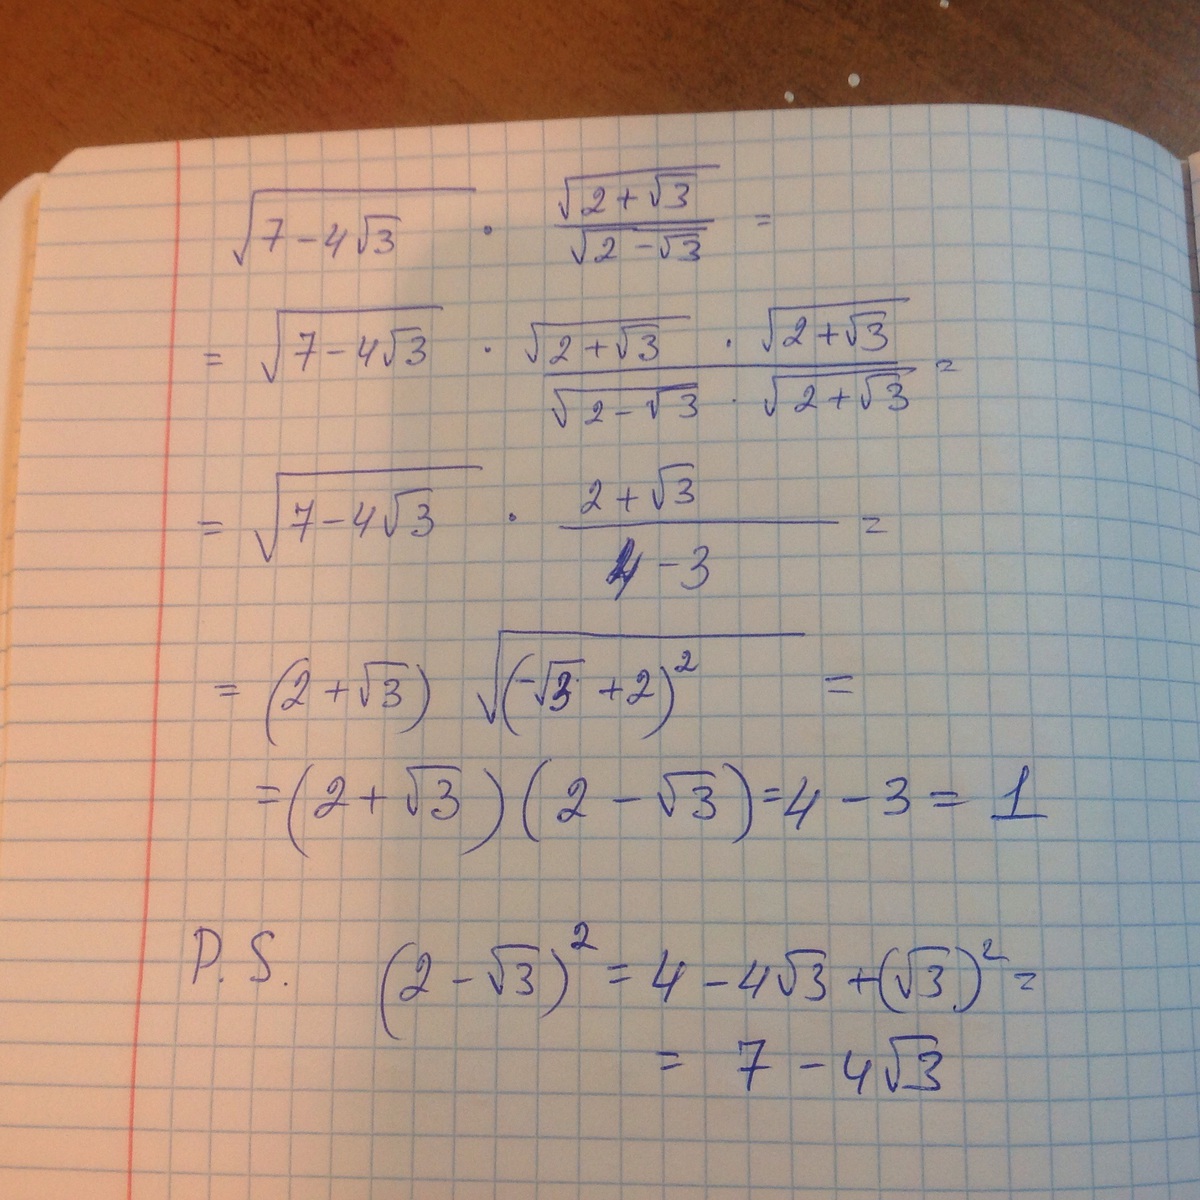 √(7-4√3) · √(2+√3)/√(2-√3) =
= √(7-4√3) · (√(2+√3) · √(2+√3))/(√(2-√3) · √(2+√3)) =
= √(7-4√3) · (2+√3)/(4-3) =
= (2+√3) √((-√3+2)²) =
= (2+√3)(2-√3) = 4-3 = 1
P.S. (2-√3)² = 4-4√3+(√3)² =
= 7-4√3